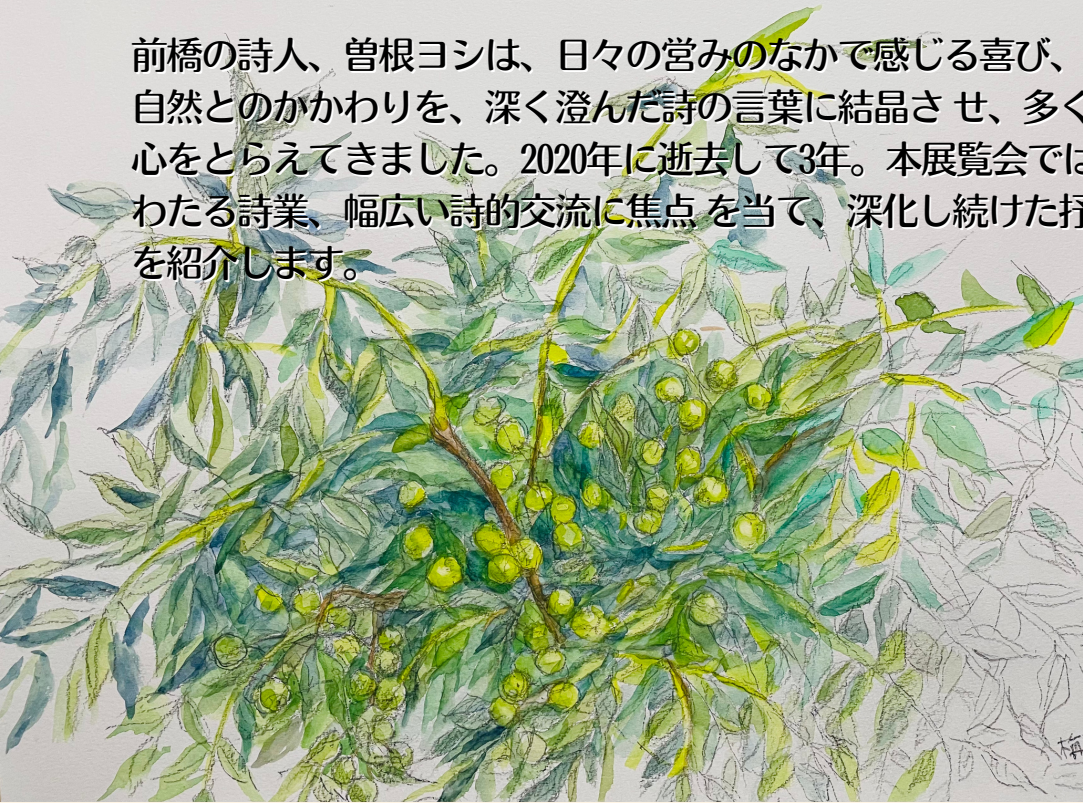 前橋の詩人、曽根ヨシは、日々の営みのなかで感じる喜び、
自然とのかかわりを、深く澄んだ詩の言葉に結晶さ せ、多く
心をとらえてきました。2020年に逝去して3年。本展覧会では
わたる詩業、幅広い詩的交流に焦点 を当て、深化し続けた抒
を紹介します。
梅